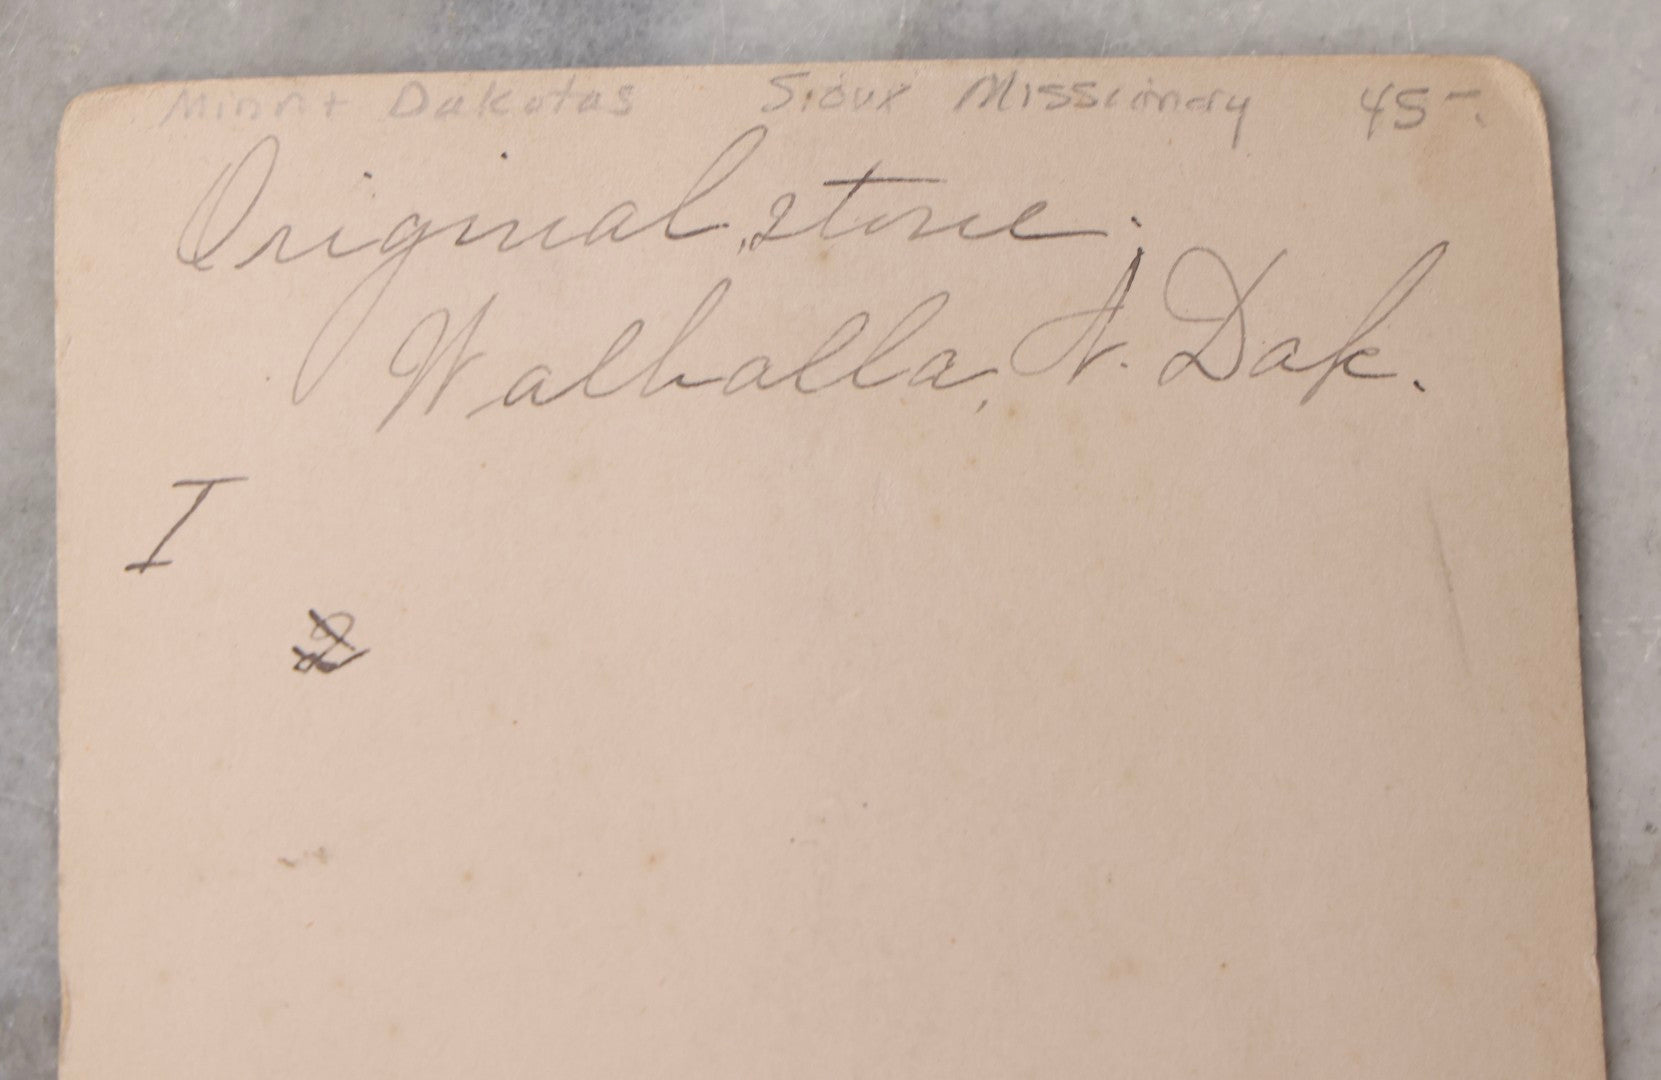 Minn + Dakotas Sioux Missionary 45-.
Original stone.
Walhalla, N. Dak.
I
2